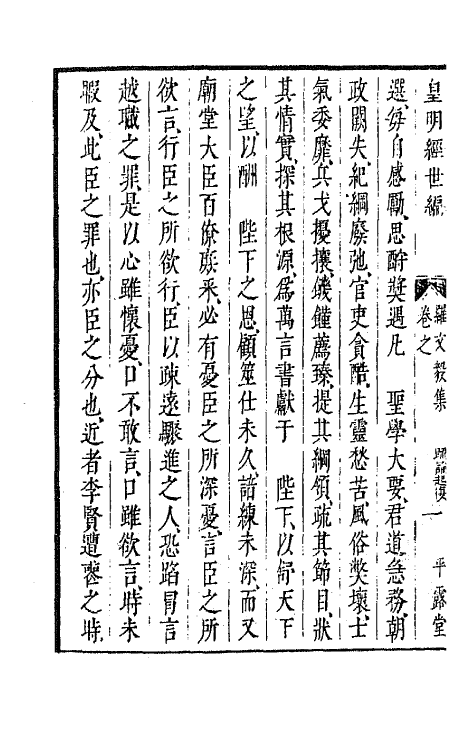 皇明經世編
羅文毅集
卷之
疏論起復
一
平露堂
選、每自感勵、思酧奬遇凡　聖學大要、君道急務、朝
政闕失、紀綱廢弛、官吏貪酷、生靈愁苦、風俗獘壞、士
氣委靡、兵戈擾攘、饑饉薦臻、提其綱領、疏其節目、狀
其情實、探其根源、爲萬言書獻于　陛下、以舒天下
之望、以酬　陛下之恩、顧筮仕未久、諳練未深、而又
廟堂大臣百僚庶采、必有憂臣之所深憂、言臣之所
欲言、行臣之所欲行、臣以疎遠驟進之人、恐蹈冒言
越職之罪、是以心雖懷憂、口不敢言、口雖欲言、時未
暇及、此臣之罪也、亦臣之分也、近者李賢遭䘮之時、